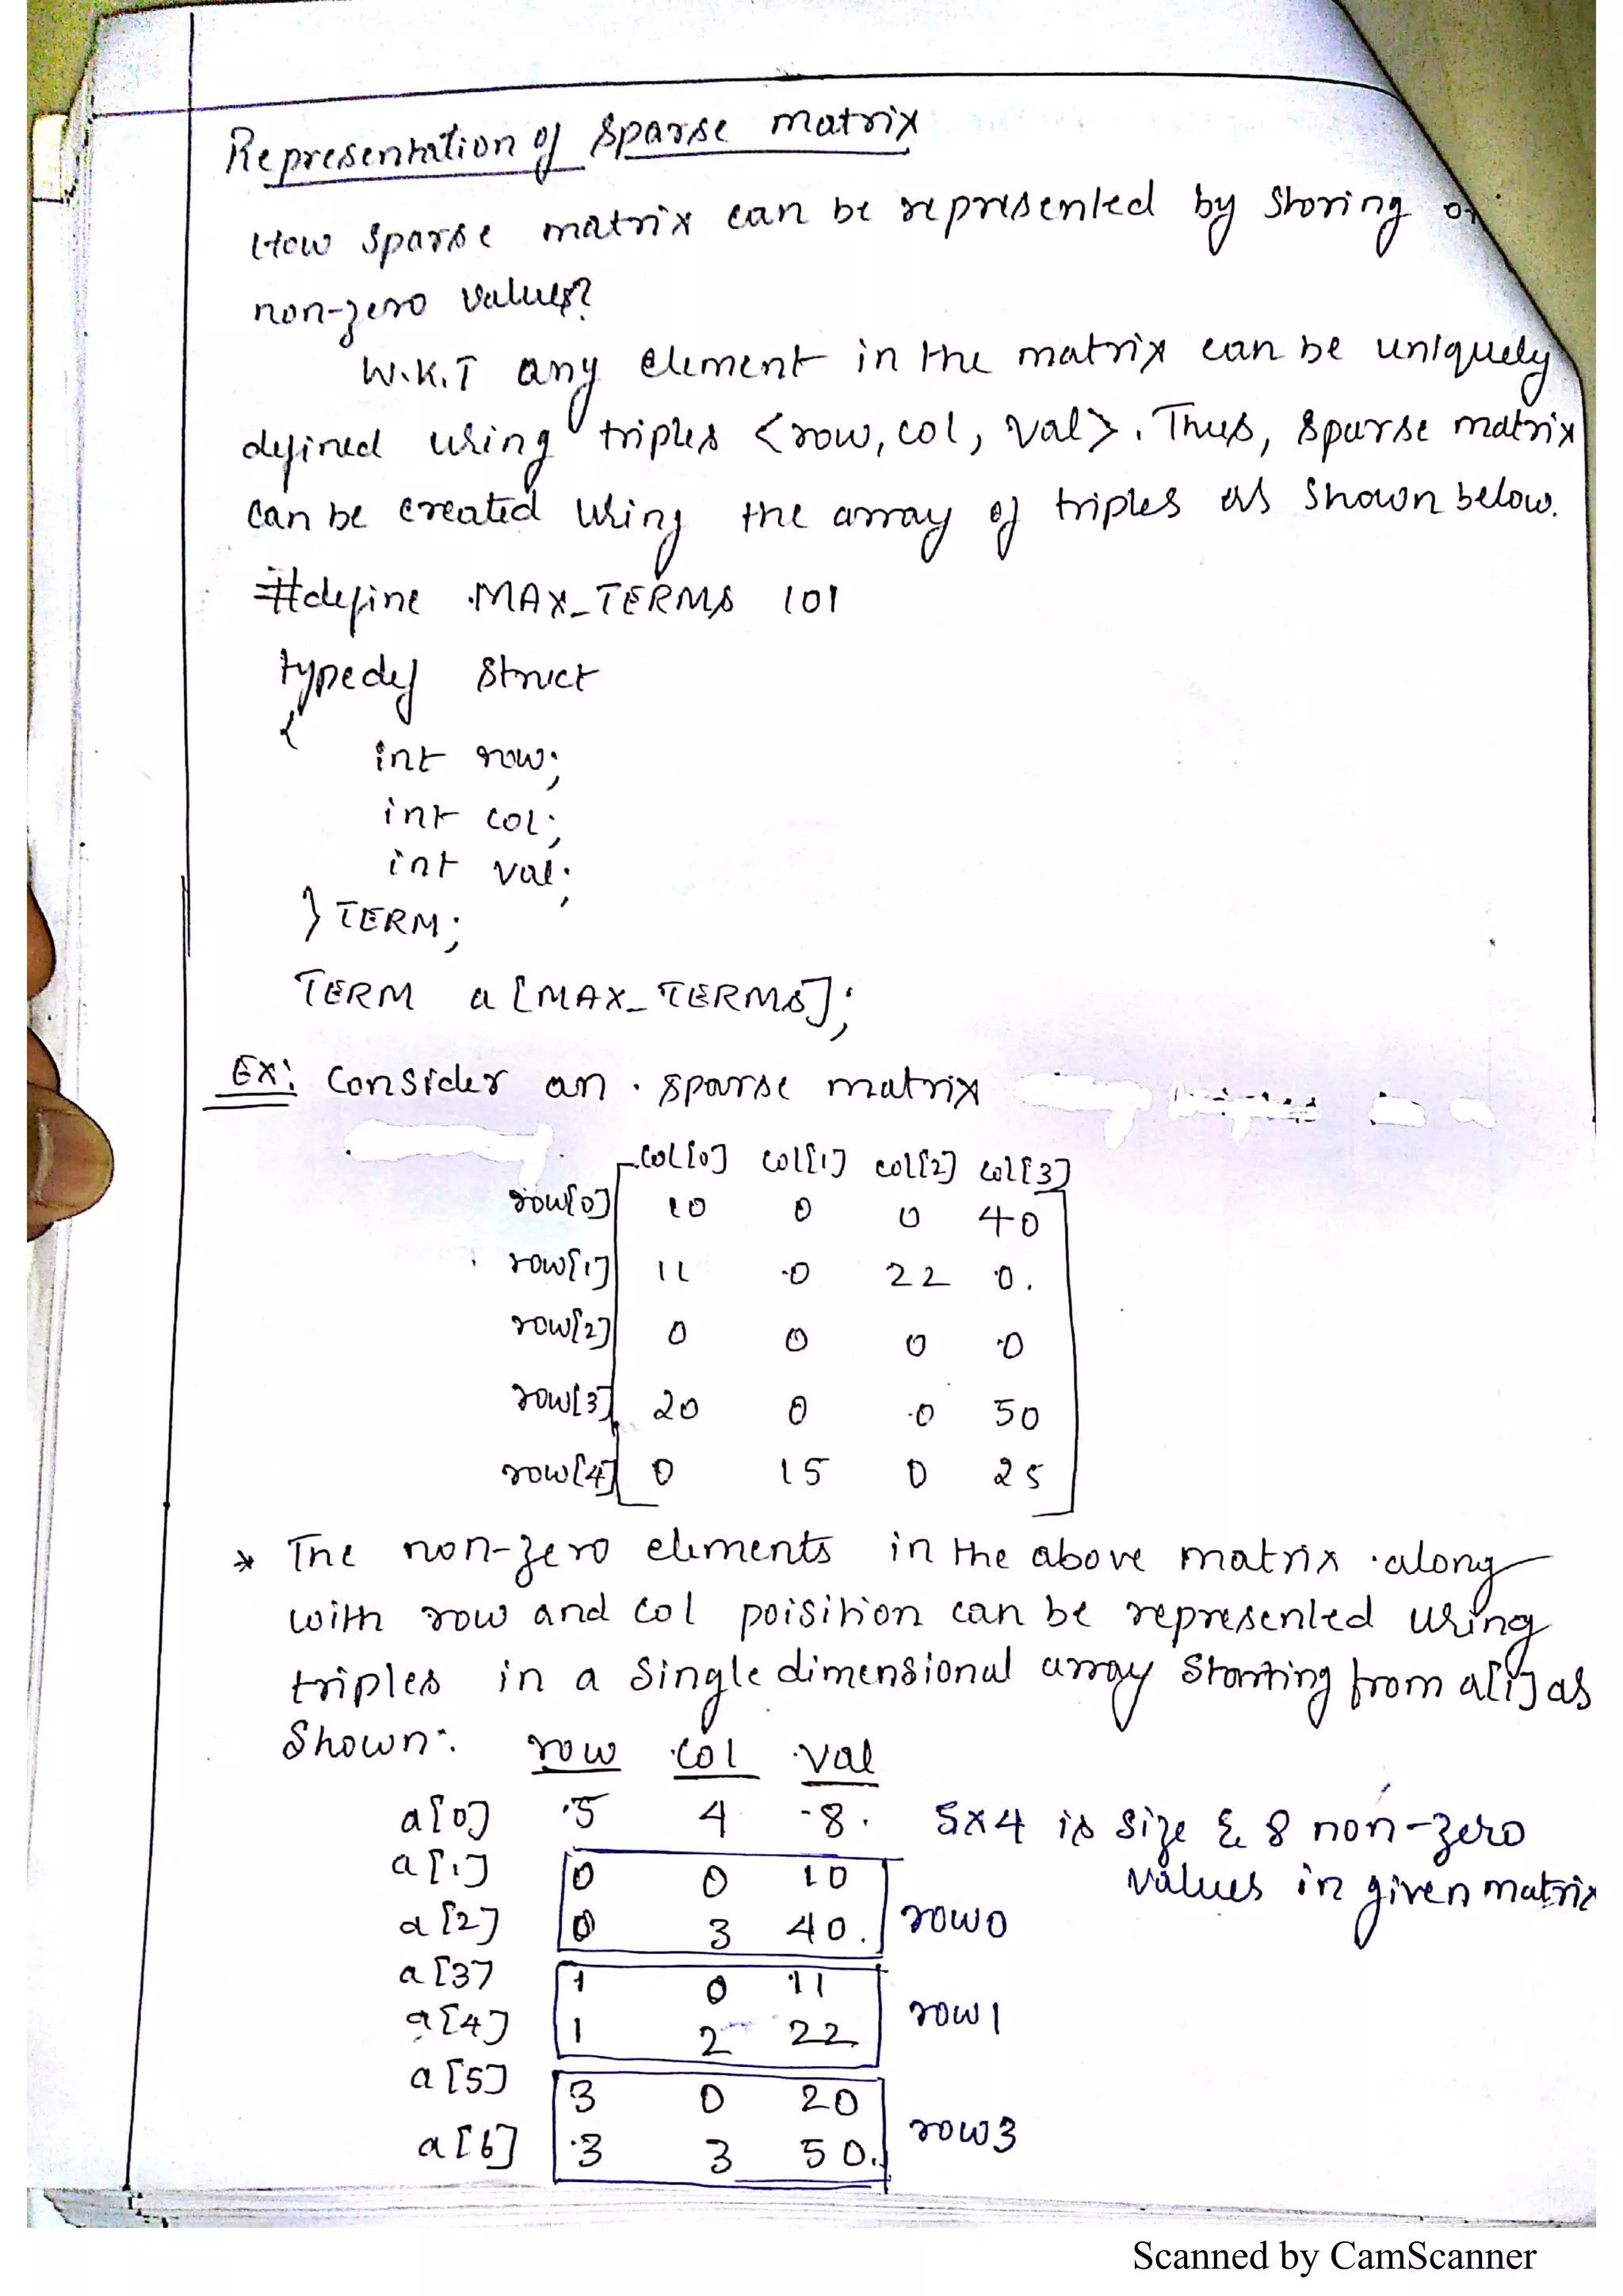 Representation of Sparse matrix
How Sparse matrix can be represented by Storing
non-zero values?
W.K.T any element in the matrix can be uniquely
defined using triples <row, col, val>. Thus, sparse matrix
can be created using the array of triples as shown below.
#define MAX_TERMS 101
typedef struct
{
int row;
int col;
int val;
} TERM;
TERM a[MAX_TERMS];
Ex: Consider an sparse matrix
col[0] col[1] col[2] col[3]
row[0] 10 0 0 40
row[1] 11 0 22 0.
row[2] 0 0 0 0
row[3] 20 0 0 50
row[4] 0 15 0 25
* The non-zero elements in the above matrix along
with row and col poisition can be represented using
triples in a Single dimensional array Starting from a[1] as
Shown:
row col val
a[0] 5 4 8. 5x4 is size & 8 non-zero
values in given matrix
a[1] 0 0 10
a[2] 0 3 40. row0
a[3] 1 0 11
a[4] 1 2 22 row 1
a[5] 3 0 20
a[6] 3 3 50. row3
Scanned by CamScanner